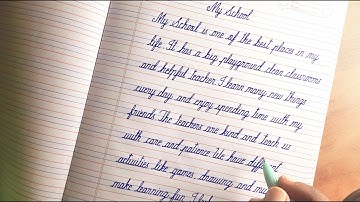 My School
My School is one of the best places in my
life. It has a big playground clean classrooms
and helpful teacher. I learn many new things
every day and enjoy spending time with my
friends. The teachers are kind and teach us
with care and patience. We have different
activities like games, drawing and
make learning fun. I